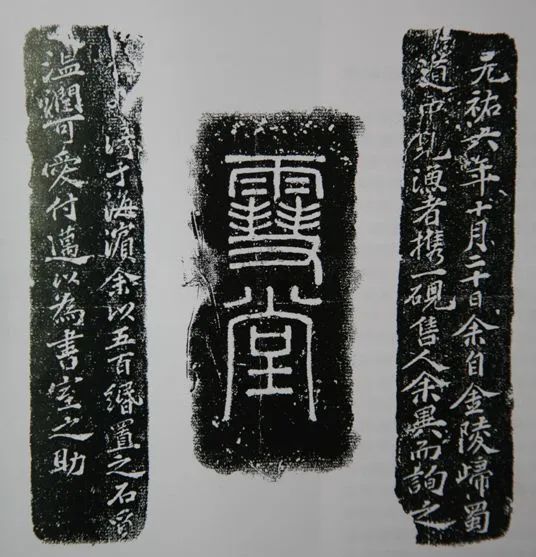 元祐六年十月二十日余自金陵歸蜀
道中見漁者携一硯售人余異而詢之
雪堂
于海濱余以五百緡置之石質
温潤可愛付邁以為書室之助